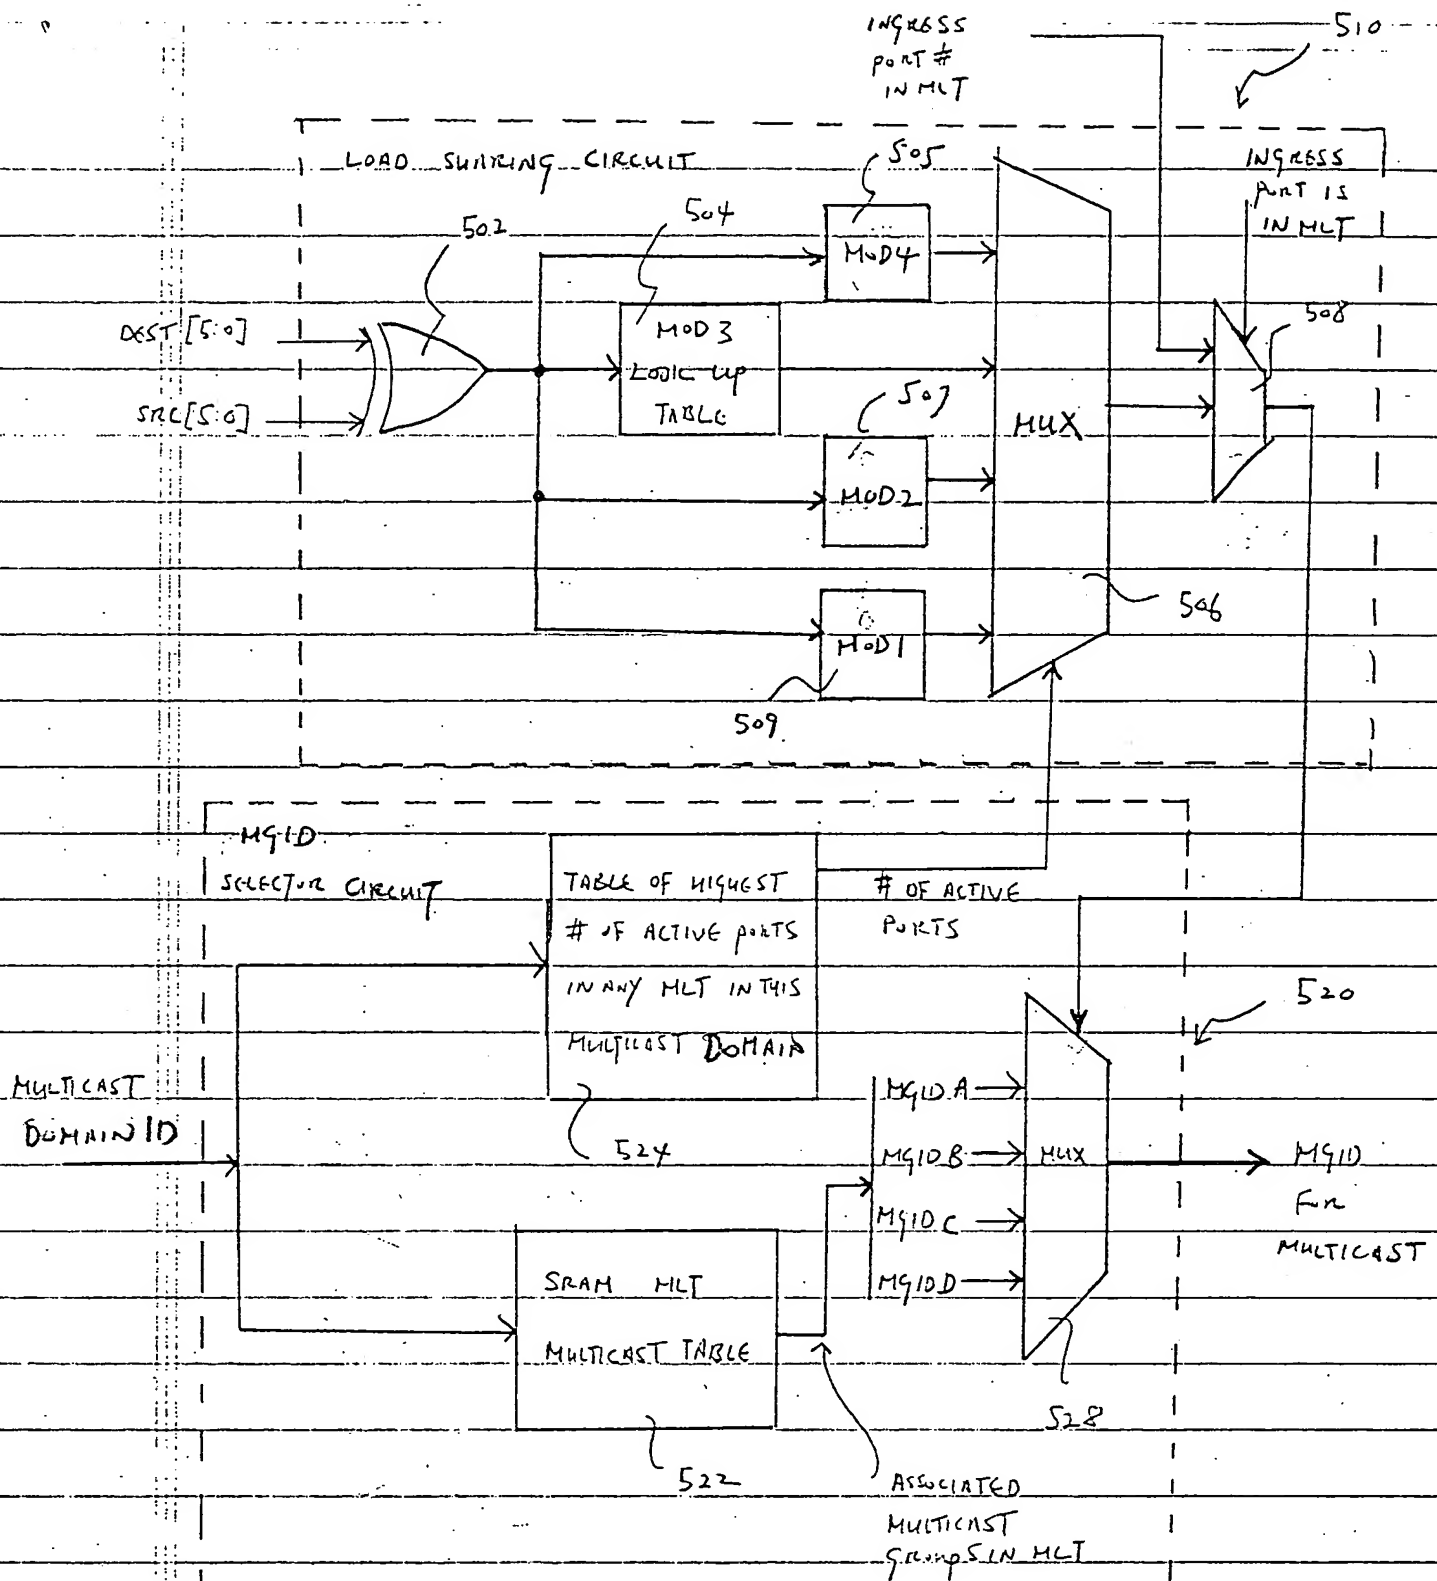 INGRESS
PORT #
IN MLT
510
LOAD SHARING CIRCUIT
505
INGRESS
PORT IS
IN MLT
502
504
MOD4
508
DEST [5:0]
MOD3
LOOK UP
TABLE
SRC[5:0]
507
MUX
MOD2
506
MOD1
509
MGID
SELECTOR CIRCUIT
TABLE OF HIGHEST
# OF ACTIVE PORTS
IN ANY MLT IN THIS
MULTICAST DOMAIN
# OF ACTIVE
PORTS
520
MULTICAST
DOMAIN ID
524
MGID A
MGID B
MGID C
MGID D
MUX
MGID
FOR
MULTICAST
SRAM MLT
MULTICAST TABLE
528
522
ASSOCIATED
MULTICAST
GROUPS IN MLT